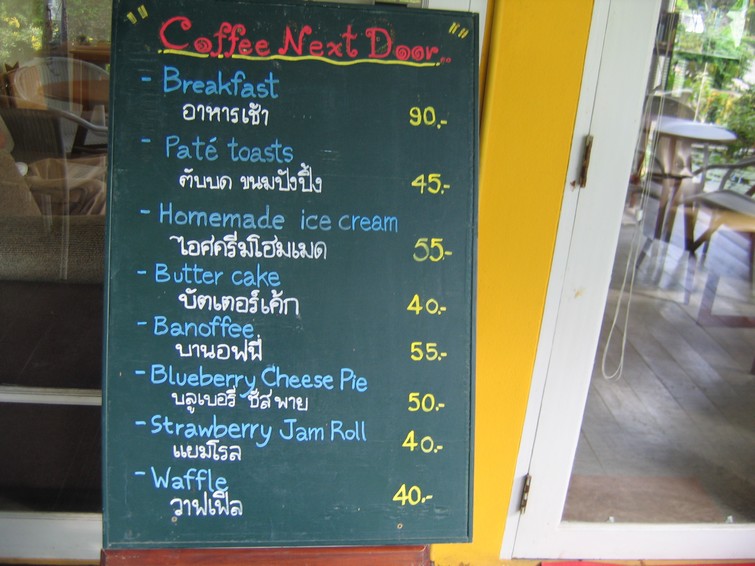 " Coffee Next Door.. "
- Breakfast
อาหารเช้า 90.-
- Paté toasts
ตับบด ขนมปังปิ้ง 45.-
- Homemade ice cream
ไอศครีมโฮมเมด 55.-
- Butter cake
บัตเตอร์เค้ก 40.-
- Banoffee
บานอฟฟี่ 55.-
- Blueberry Cheese Pie
บลูเบอรี่ ชีส พาย 50.-
- Strawberry Jam Roll
แยมโรล 40.-
- Waffle
วาฟเฟิล 40.-